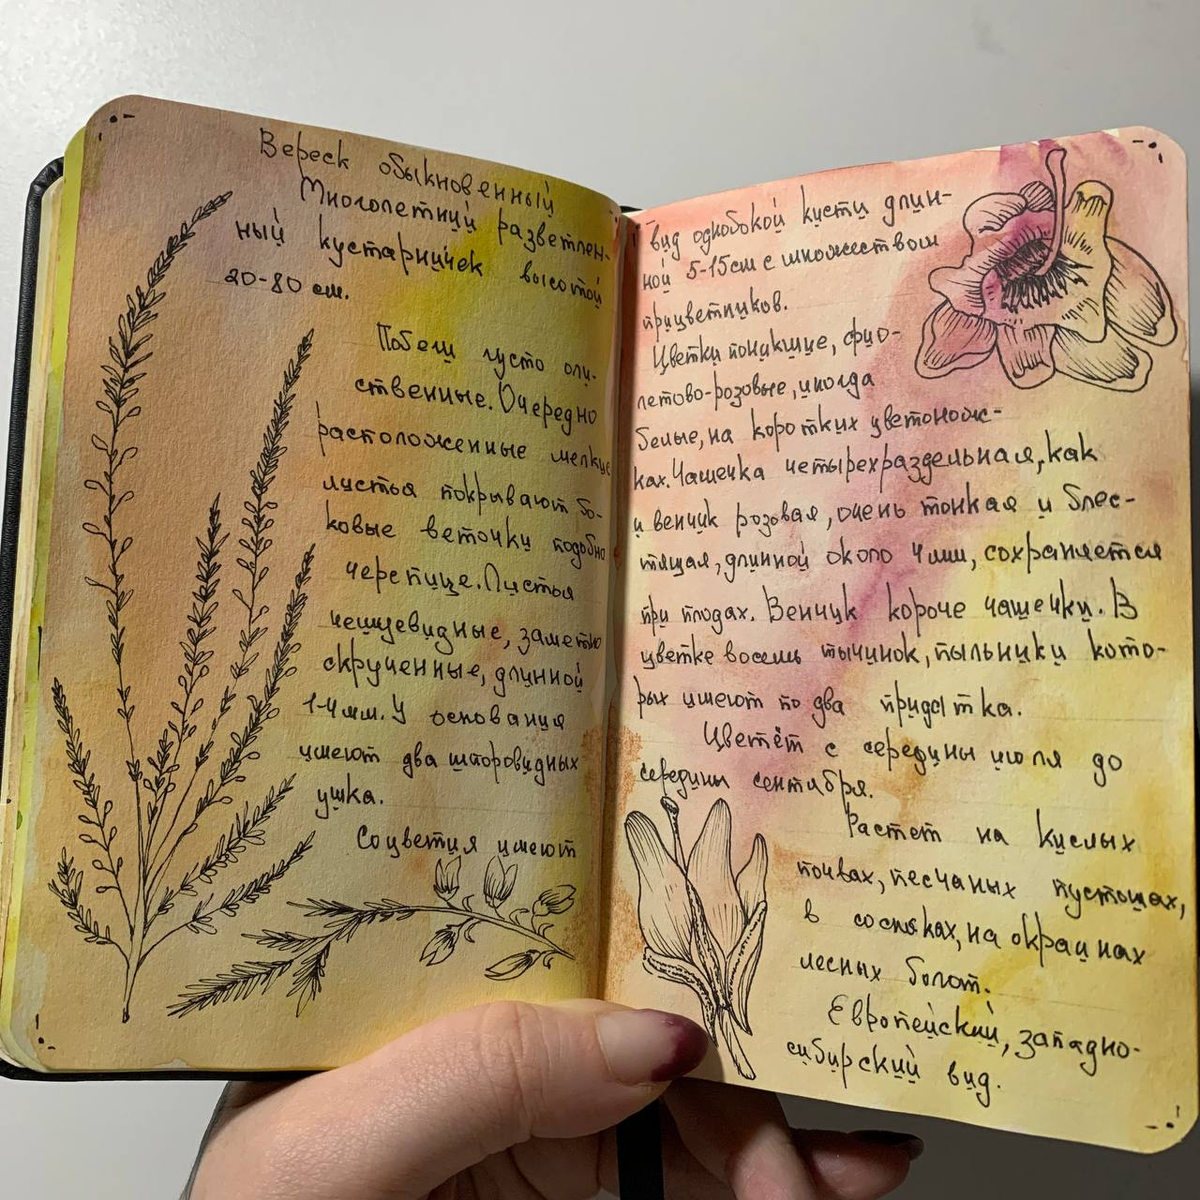 Вереск обыкновенный
Многолетний разветлен-
ный кустарничек высотой
20-80 см.
Побеги густо оли-
ственные. Очередно
расположенные мелкие
листья покрывают бо-
ковые веточки подобно
черепице. Листья
чешуевидные, заметно
скрученные, длинной
1-4 мм. У основания
имеют два шпоровидных
ушка.
Соцветия имеют
вид однобокой кисти длин-
ной 5-15см с множеством
прицветников.
Цветки поникшие, фио-
летово-розовые, иногда
белые, на коротких цветонож-
ках. Чашечка четырехраздельная, как
и венчик розовая, очень тонкая и блес-
тящая, длинной около 4мм, сохраняется
при плодах. Венчик короче чашечки. В
цветке восемь тычинок, пыльники кото-
рых имеют по два придатка.
Цветёт с середины июля до
середины сентября.
Растет на кислых
почвах, песчаных пустошах,
в сосняках, на окраинах
лесных болот.
Европейский, западно-
сибирский вид.